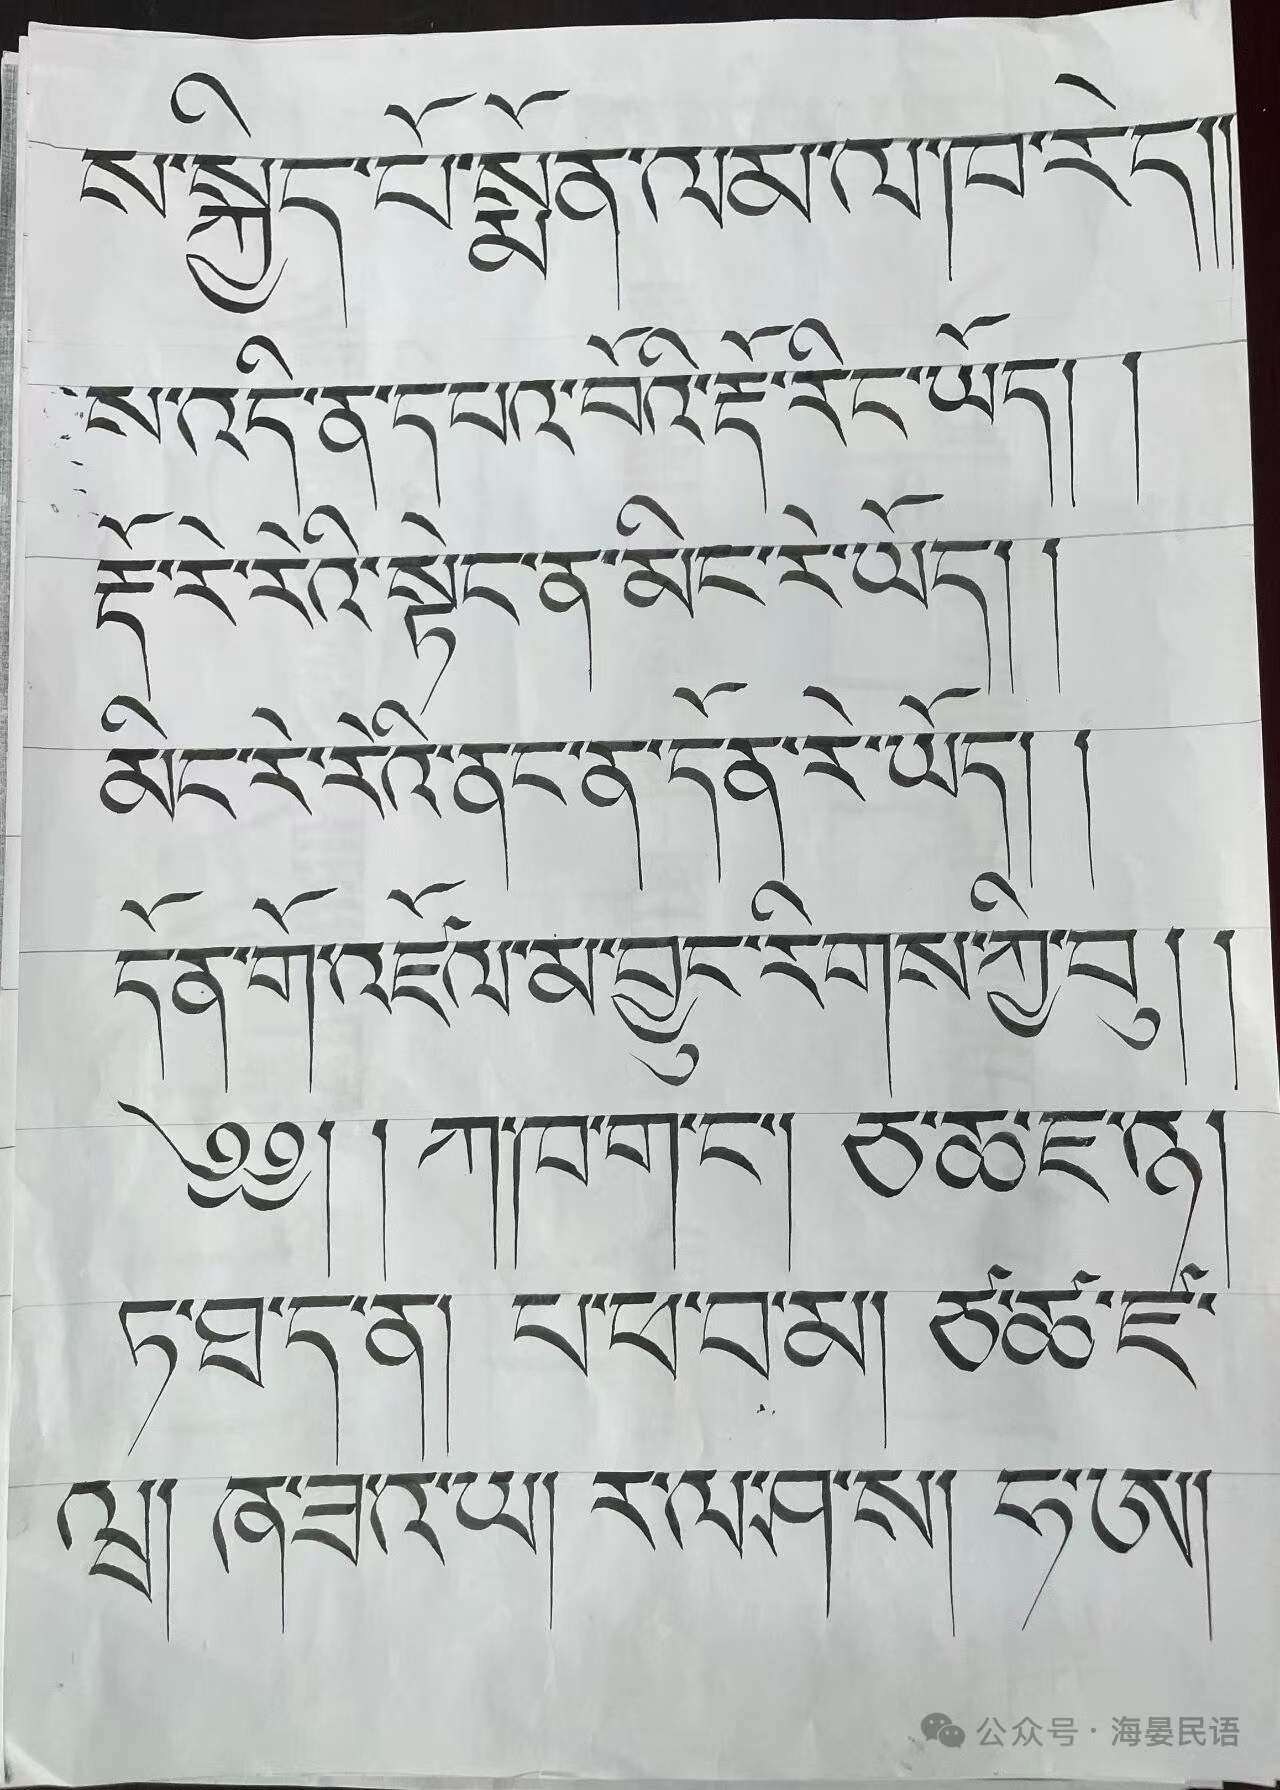 ས་སྐྱིད་པོ་སྨོན་ལམ་ལ་ཁ་རེད།།
ས་འདི་ན་དཔའ་བོའི་རྡོ་རིང་ཡོད། །
རྡོ་རེ་རེའི་སྟེང་ན་མིང་རེ་ཡོད། །
མིང་རེ་རེའི་ནང་ན་དོན་རེ་ཡོད། །
དོན་གོ་འཛོལ་མ་བྱུང་རིགས་ཀྱི་བུ། །
༄༅། །ཀ་ཁ་ག་ང་། ཅ་ཆ་ཇ་ཉ།
ཏ་ཐ་ད་ན། པ་ཕ་བ་མ། ཙ་ཚ་ཛ་
ཝ། ཞ་ཟ་འ་ཡ། ར་ལ་ཤ་ས། ཧ་ཨ།
公众号·海晏民语